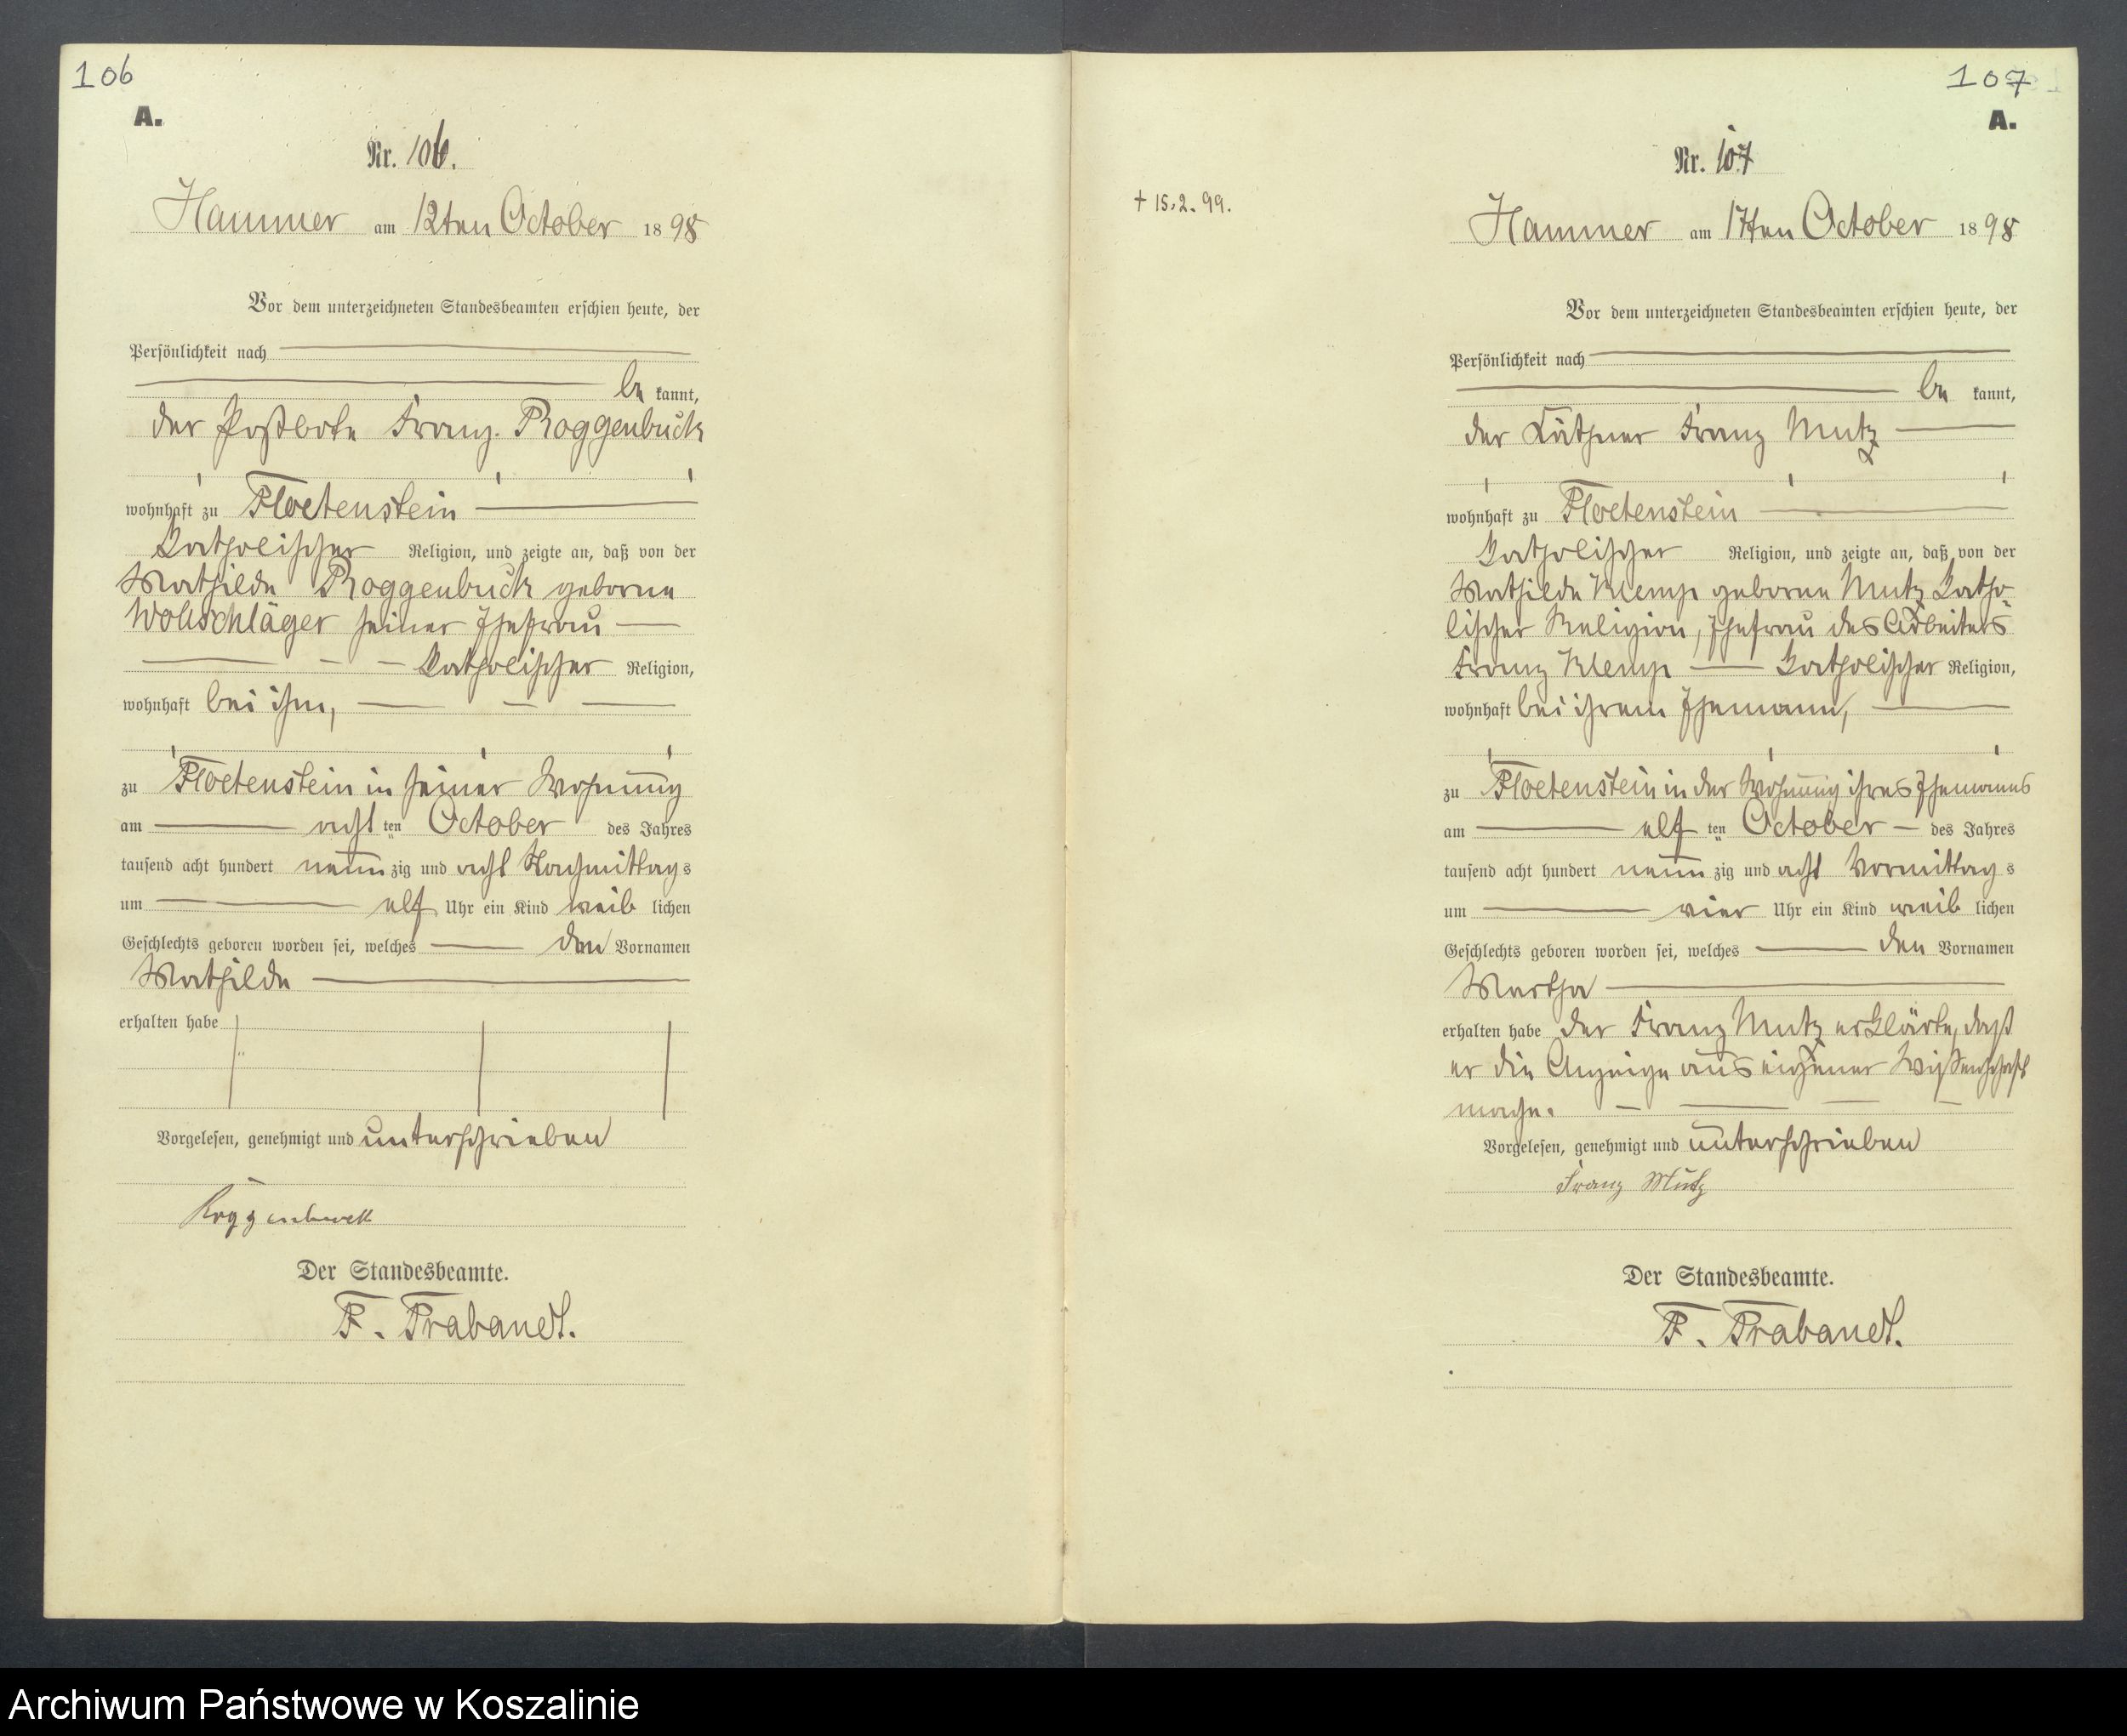 106
A.
Nr. 106.
Hammer am 12ten October 1898
Vor dem unterzeichneten Standesbeamten erschien heute, der
Persönlichkeit nach
be kannt,
der Postbote Franz Roggenbuck
wohnhaft zu Floetenstein
katholischer Religion, und zeigte an, daß von der
Mathilde Roggenbuck geborne
Wollschläger seiner Ehefrau
katholischer Religion,
wohnhaft bei ihm,
zu Floetenstein in seiner Wohnung
am acht ten October des Jahres
tausend acht hundert neun zig und acht Nachmittag s
um elf Uhr ein Kind weib lichen
Geschlechts geboren worden sei, welches den Vornamen
Mathilde
erhalten habe
Vorgelesen, genehmigt und unterschrieben
Roggenbuck
Der Standesbeamte.
F. Trabandt.
107
A.
Nr. 107
+ 15.2.99.
Hammer am 17ten October 1898
Vor dem unterzeichneten Standesbeamten erschien heute, der
Persönlichkeit nach
be kannt,
der Käthner Franz Mutz
wohnhaft zu Floetenstein
katholischer Religion, und zeigte an, daß von der
Mathilde Klemp geborne Mutz katho-
lischer Religion, Ehefrau des Arbeiters
Franz Klemp katholischer Religion,
wohnhaft bei ihrem Ehemann,
zu Floetenstein in der Wohnung ihres Ehemanns
am elf ten October des Jahres
tausend acht hundert neun zig und acht Vormittag s
um vier Uhr ein Kind weib lichen
Geschlechts geboren worden sei, welches den Vornamen
Martha
erhalten habe der Franz Mutz erklärte, daß
er die Anzeige aus eigener Wißenschaft
mache.
Vorgelesen, genehmigt und unterschrieben
Franz Mutz
Der Standesbeamte.
F. Trabandt.
Archiwum Państwowe w Koszalinie